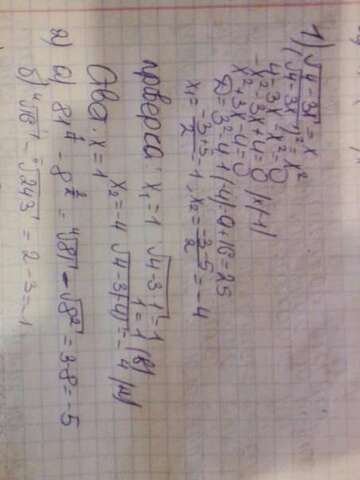 1) √4-3x = x
(√4-3x)² = x²
4-3x-x²=0
-x²-3x+4=0 /x(-1)
x²+3x-4=0
D=3²-4·1·(-4)=9+16=25
x₁= (-3+5)/2 = 1, x₂= (-3-5)/2 = -4
проверка: x₁=1 √4-3·1 = 1
1=1 (в)
x₂=-4 √4-3(-4) = -4 (н)
Ответ: x=1
2) а) 81^¼ - 8^(2/2) = ⁴√81 - √8² = 3-8=-5
б) ⁴√16 - ⁵√243 = 2-3=-1